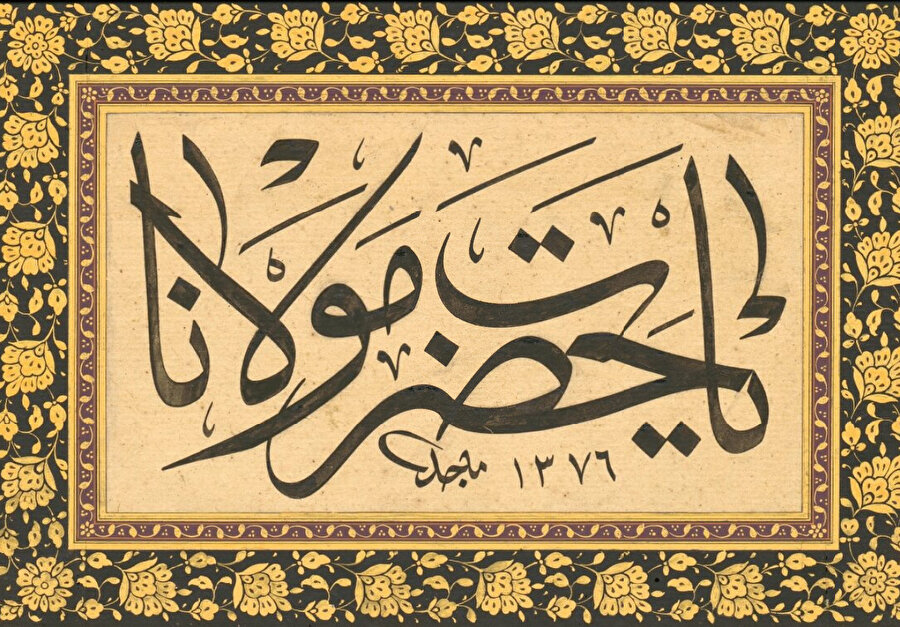 يا حضرت مولانا
ماجد ١٣٧٦